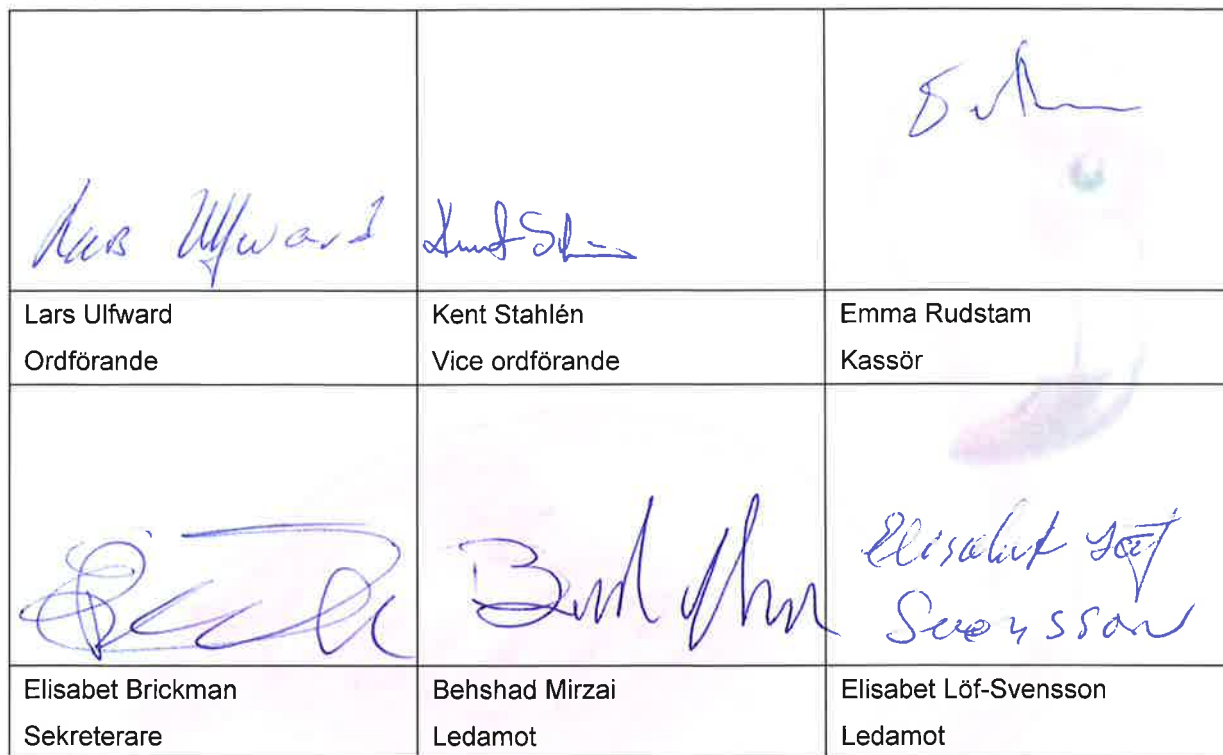 Lars Ulfward
Lars Ulfward
Ordförande
Kent Stahlén
Vice ordförande
Emma Rudstam
Kassör
Elisabet Löf
Svensson
Elisabet Brickman
Sekreterare
Behshad Mirzai
Ledamot
Elisabet Löf-Svensson
Ledamot